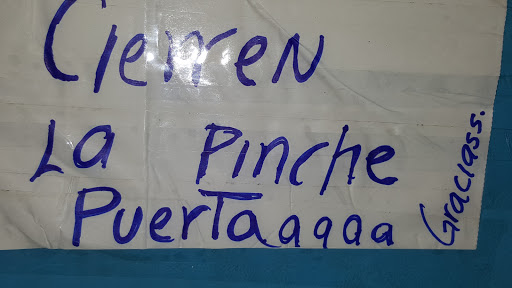 Cierren
La Pinche
Puertaaaaa
Graciass.